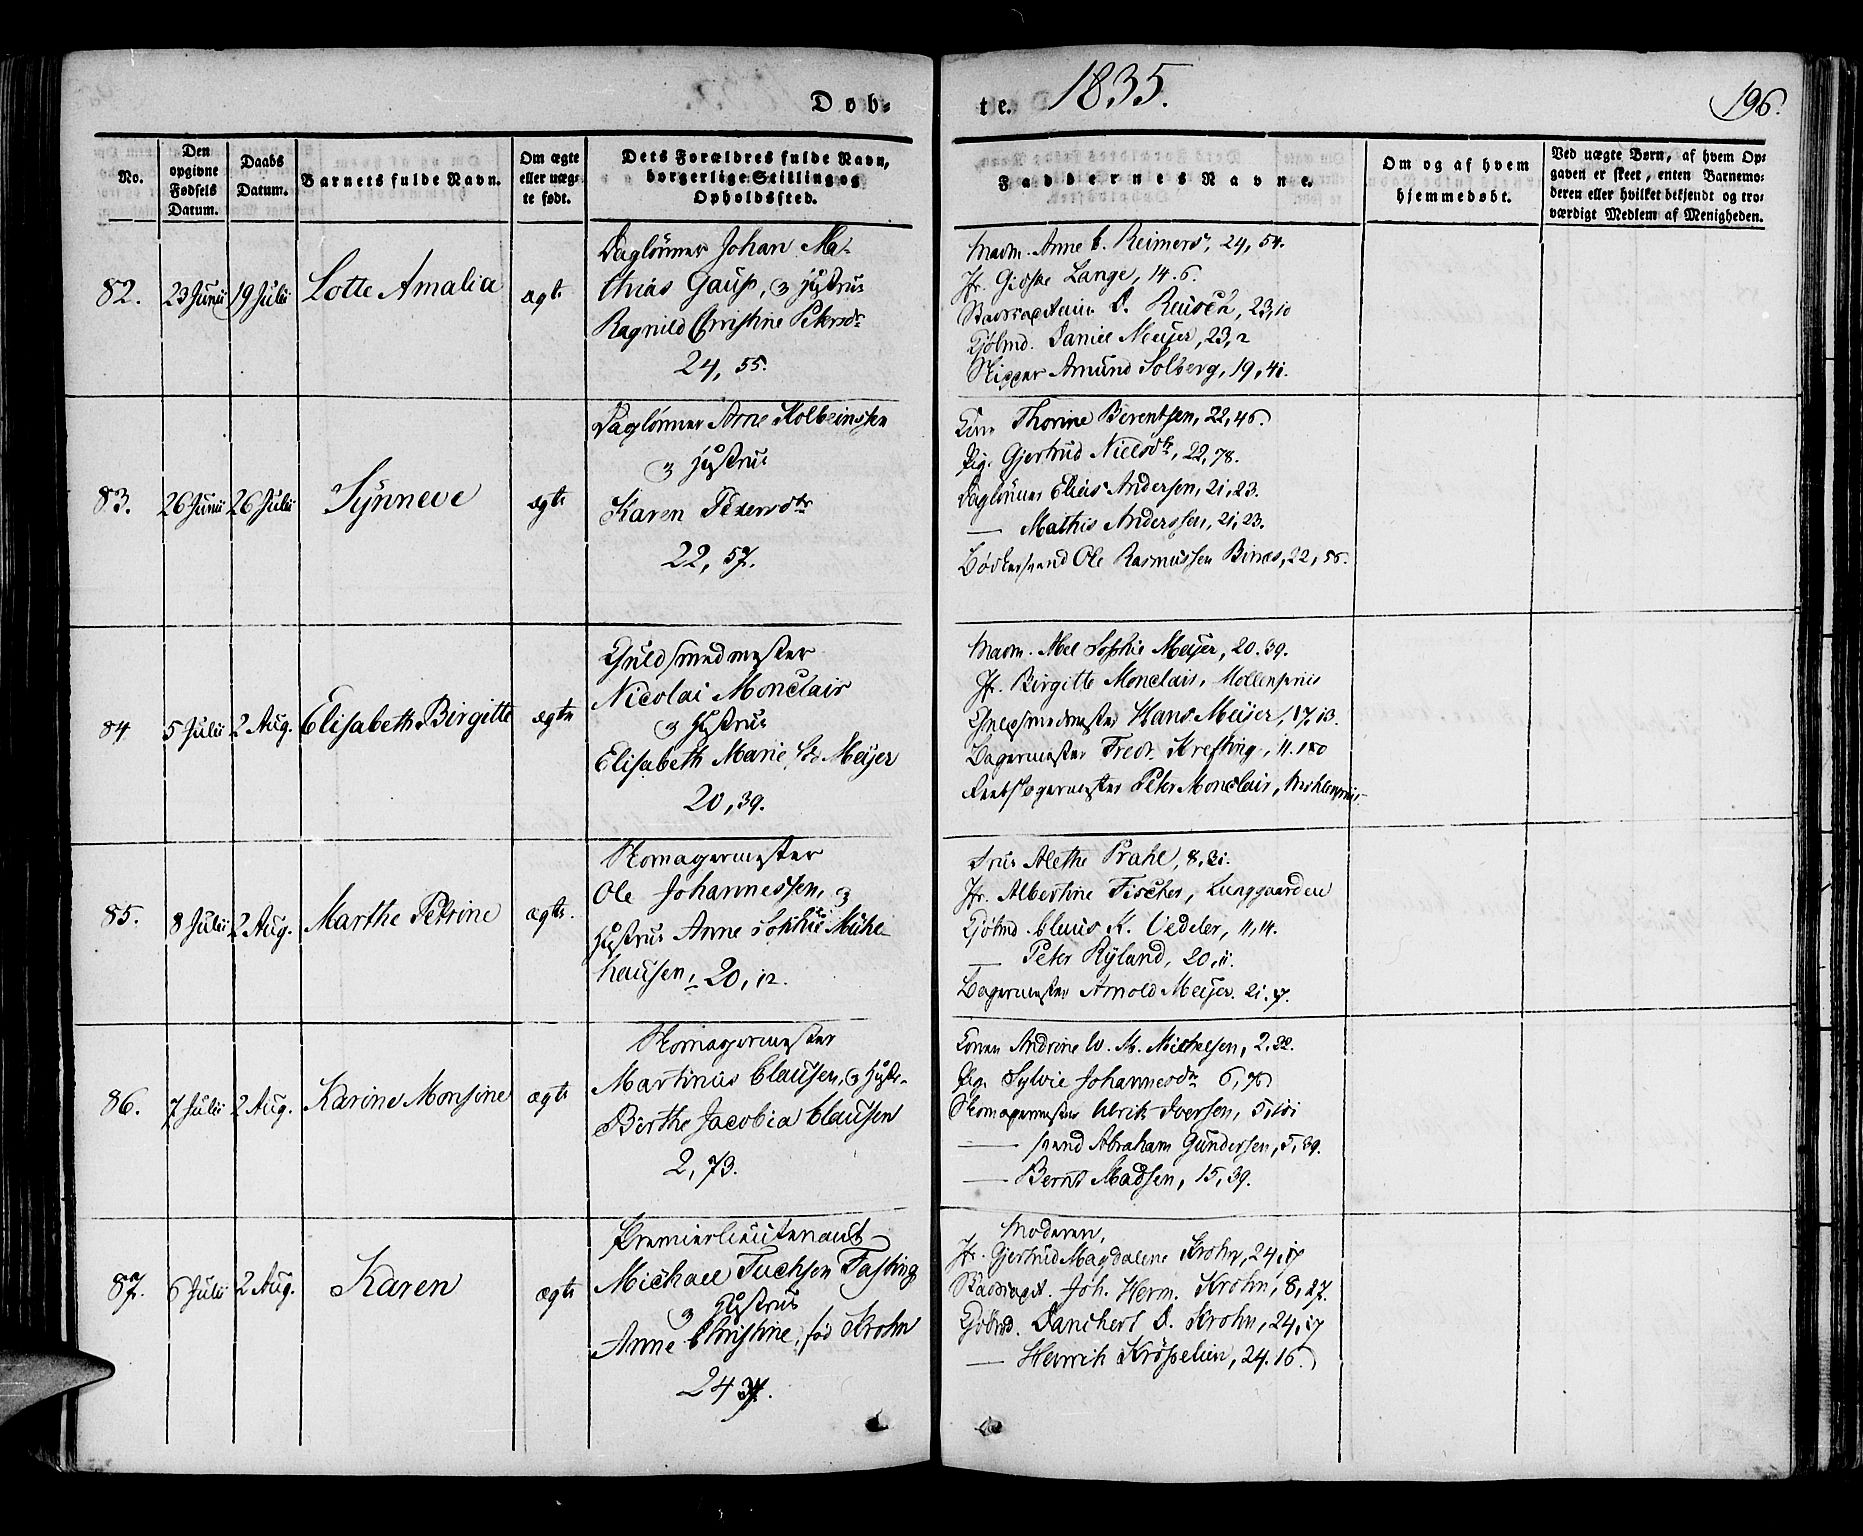 Døb-
te. 1835. 196.
No.
Den opgivne Fødsels Datum.
Daabs Datum.
Barnets fulde Navn.
Om ægte eller uæg-
te født.
Dets Forældres fulde Navn,
borgerlige Stilling og
Opholdssted.
Faddernes Navne.
Om og af hvem
hjemmedøbt.
Ved uægte Børn, af hvem Op-
gaven er skeet, enten Barnemo-
deren eller hvilket bekjendt og tro-
værdigt Medlem af Menigheden.
82. 23 Junii 19 Julii Lotte Amalia ægte
Daglønner Johan Ma-
thias Gaus, & Hustrue
Ragnild Christine Petersdr
24, 55.
Madm. Anne C. Reimers, 24, 54.
Jfr. Gidske Lange, 14. 6.
Stadscaptein D. Reusch, 23, 10
Kjøbmd. Daniel Meyer, 23, 2
Skipper Amund Solberg, 19, 41.
83. 26 Junii 26 Julii Synneve ægte
Daglønner Arne Kolbeinsen
& Hustrue
Karen Pedersdtr
22, 57.
Kone Thorine Berentsen, 22, 46
Pig. Gjertrud Nielsdtr, 22, 78.
Daglønner Elias Andersen, 21, 23.
— Mathis Anderssen, 21, 23.
Bødkersvend Ole Rasmussen 22, 56.
84 5 Julii 2 Aug. Elisabeth Birgitte ægte
Guldsmedmester
Nicolai Monclair
& Hustrue
Elisabeth Marie f. Meyer
20, 39.
Madm. Abel Sophie Meyer, 20. 39.
Jfr. Birgitte Monclair, Møllenpriis
Guldsmedmester Hans Meyer, 17, 13.
Bagermester Fredr. Krefting, 11. 180
Peter Monclair, Møhlenpriis
85. 8 Julii 2 Aug. Marthe Petrine ægte.
Skomagermester
Ole Johannessen, &
Hustrue Anne Sophie Mühl-
hausen, 20, 12.
Frue Alethe Prahl, 8, 31.
Jfr. Albertine Fischer, Lunggaarden
Kjøbmd. Claus K. Vedeler, 11, 14.
— Peter Ryland, 20, 11.
Bagermester Arnold Meyer. 21. 17.
86. 7 Julii 2 Aug. Karine Monsine ægte
Skomagermester
Martinus Clausen, & Hustr.
Birthe Jacobia Clausen
2, 73.
Konen Andrine W. M. Michelsen, 2. 22.
Pig. Sylvie Johannesdtr 6, 76
Skomagermester Ulrik Iversen, 5, 101
— svend Abraham Gundersen, 5, 39.
— Bernt Madsen, 15, 39.
87. 6 Julii 2 Aug. Karen ægte
Premierlieutenant
Michael Tuchsen Fasting
& Hustrue
Anne Christine, fød Krohn
24 37.
Moderen,
Jfr. Gjertrud Magdalene Krohn, 24, 17
Stadscapt. Joh. Herm. Krohn, 8, 27.
Kjøbmd. Danckert D. Krohn, 24, 17
— Henrik Krøpelien, 24. 16